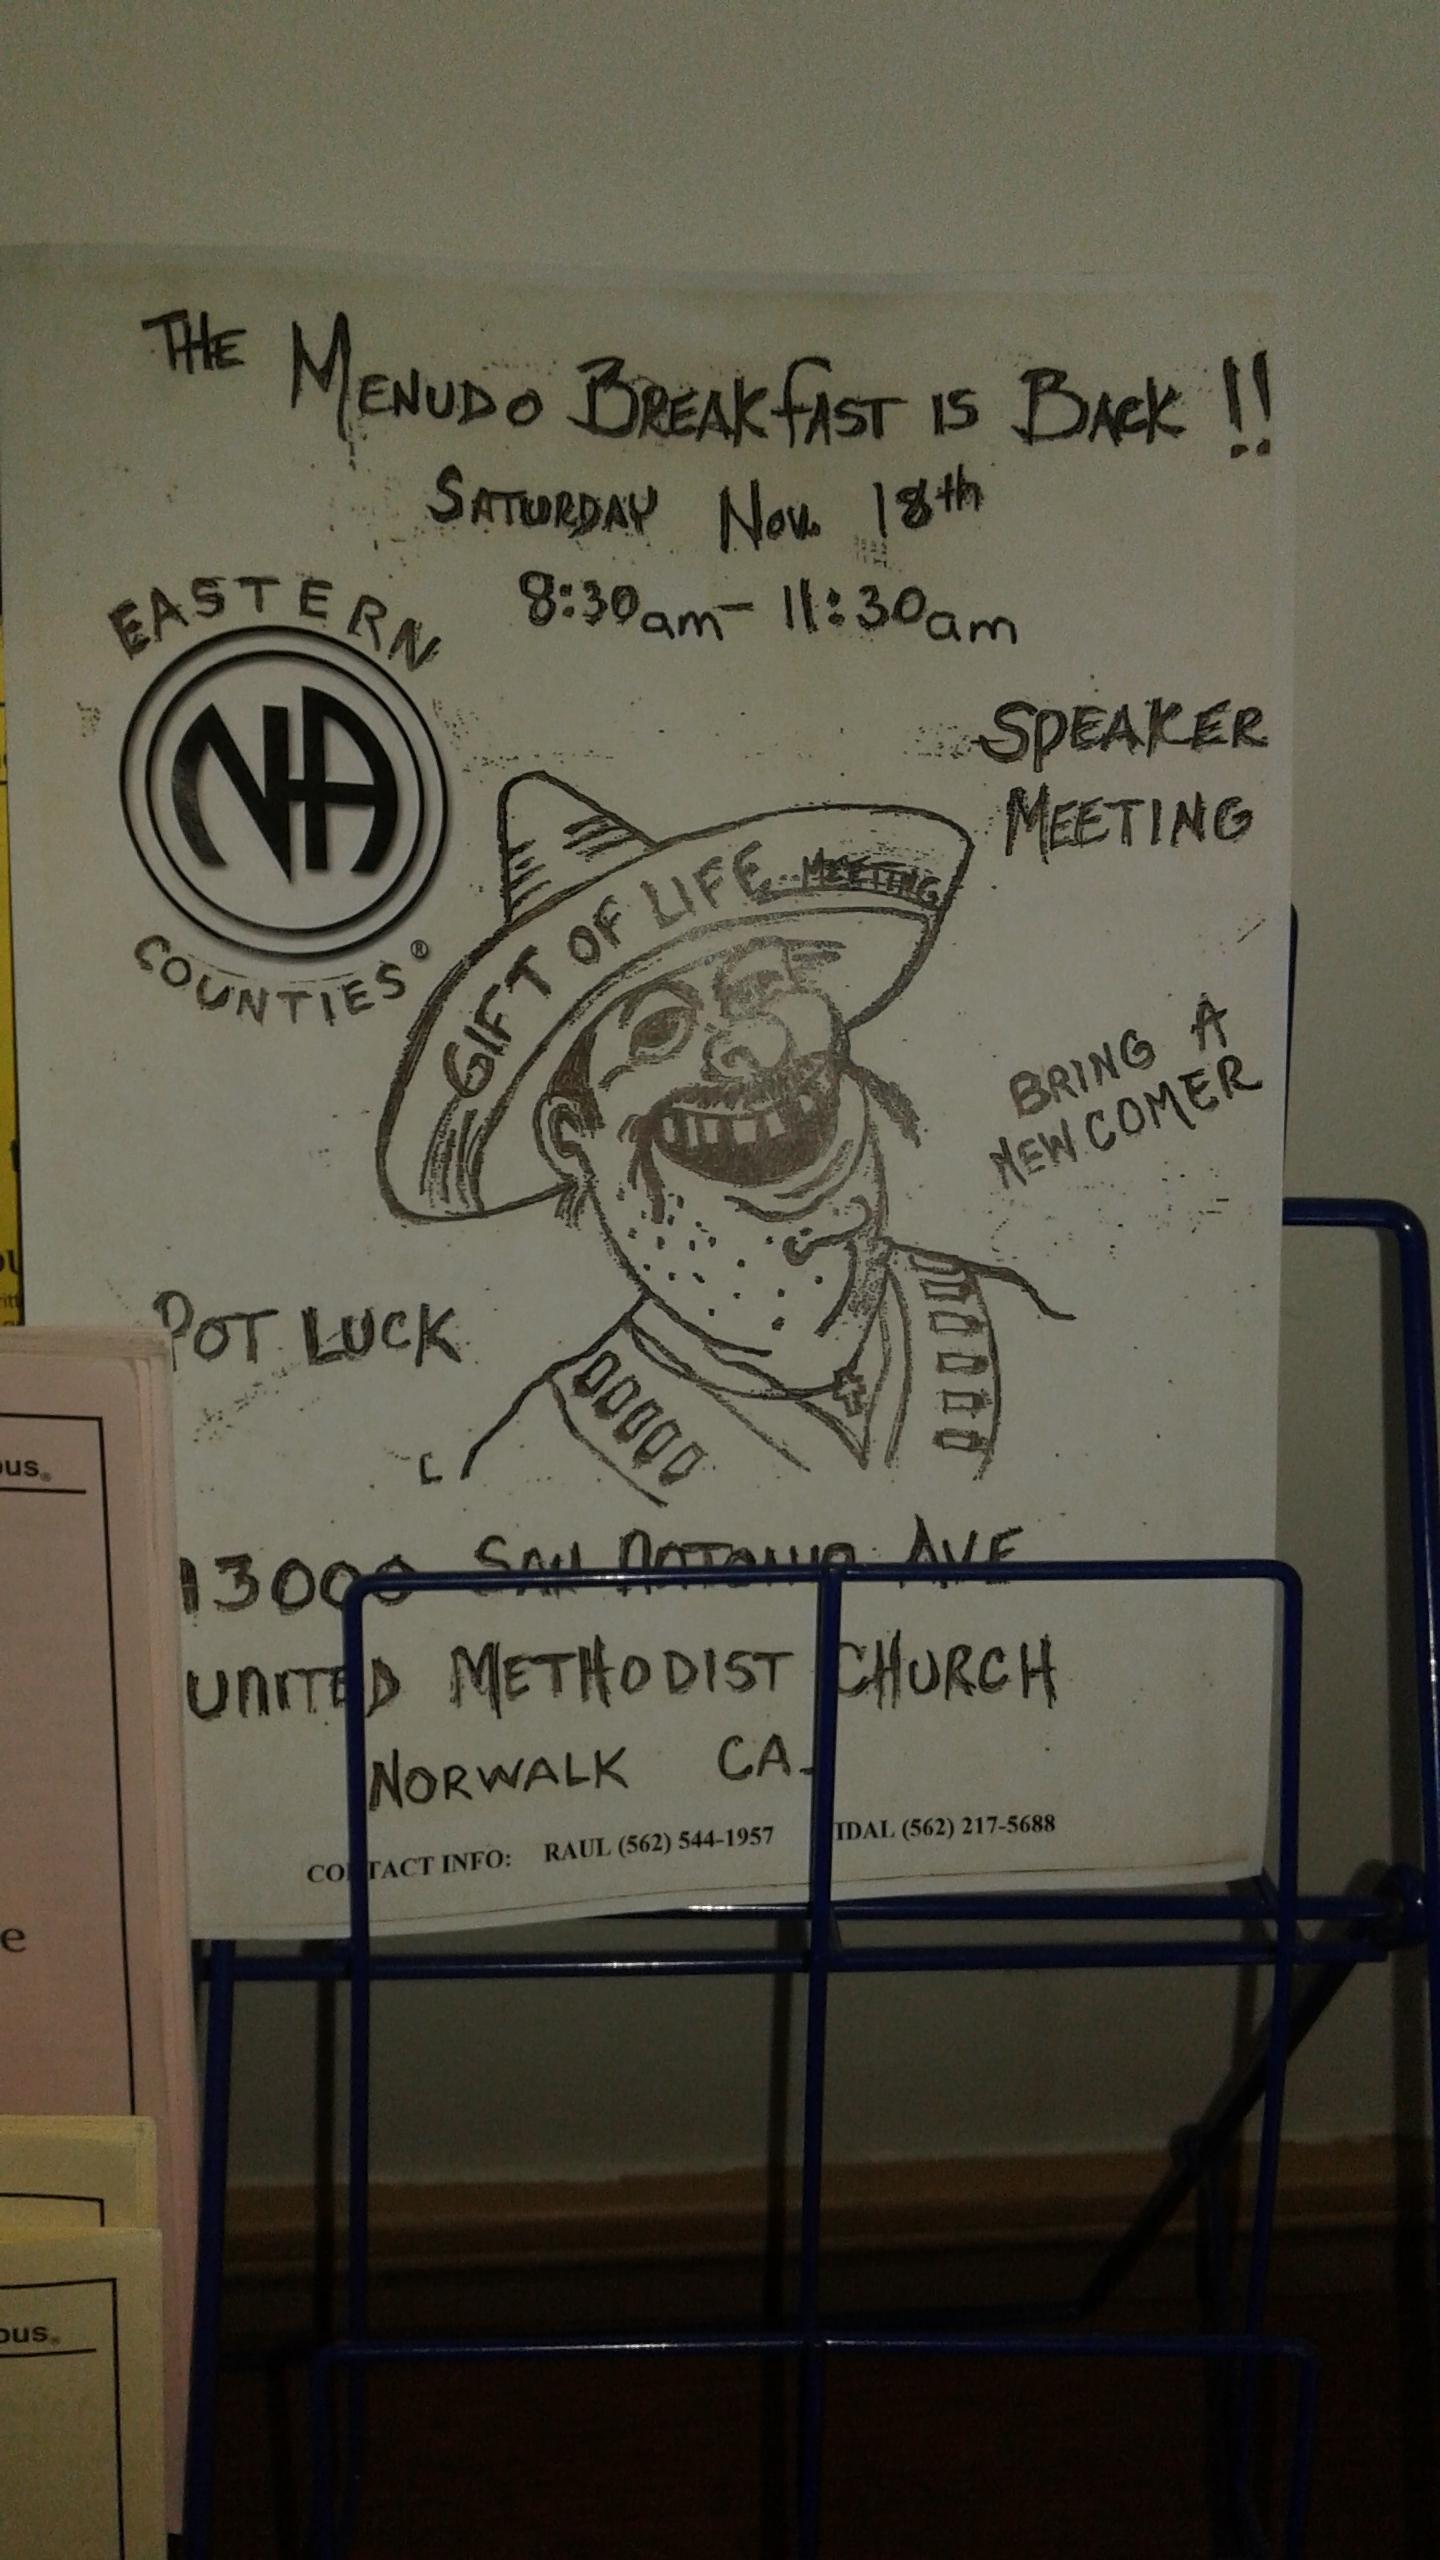 THE MENUDO BREAKfAST IS BACK !!
SATURDAY Nov. 18th
8:30am - 11:30am
EASTERN
NA
COUNTIES®
SPEAKER
MEETING
GIFT OF LIFE MEETING
BRING A
NEWCOMER
POT LUCK
13000 SAN AVE
UNITED METHODIST CHURCH
NORWALK CA.
CONTACT INFO: RAUL (562) 544-1957 IDAL (562) 217-5688
ous®
e
ous®